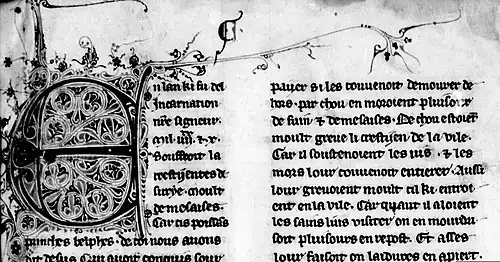 En lan ki fu del
Incarnation
nr̃e signeur
.iiij. & .x.
Souffroit la
crestijentes de
surye. moult
de mesaises.
Car cis poissas
belphes. de coi nous auons
dit desus auoit conquis sour
paijer si les couuenoit demourer de
hors. par chou en moroient
de fain & de mesaises. Ne chou
moult greue li crestijen de la vile.
Car il soustenoient les uis. & les
mors lour couuenoit entierer. Aussi
lour greuoient moult cil ki entroi
ent en la vile. Car quant il aloient
les sains luis visiter on en mourdri
soit pluisours en repost. Et asses
lour faisoit on laidures en apiert.